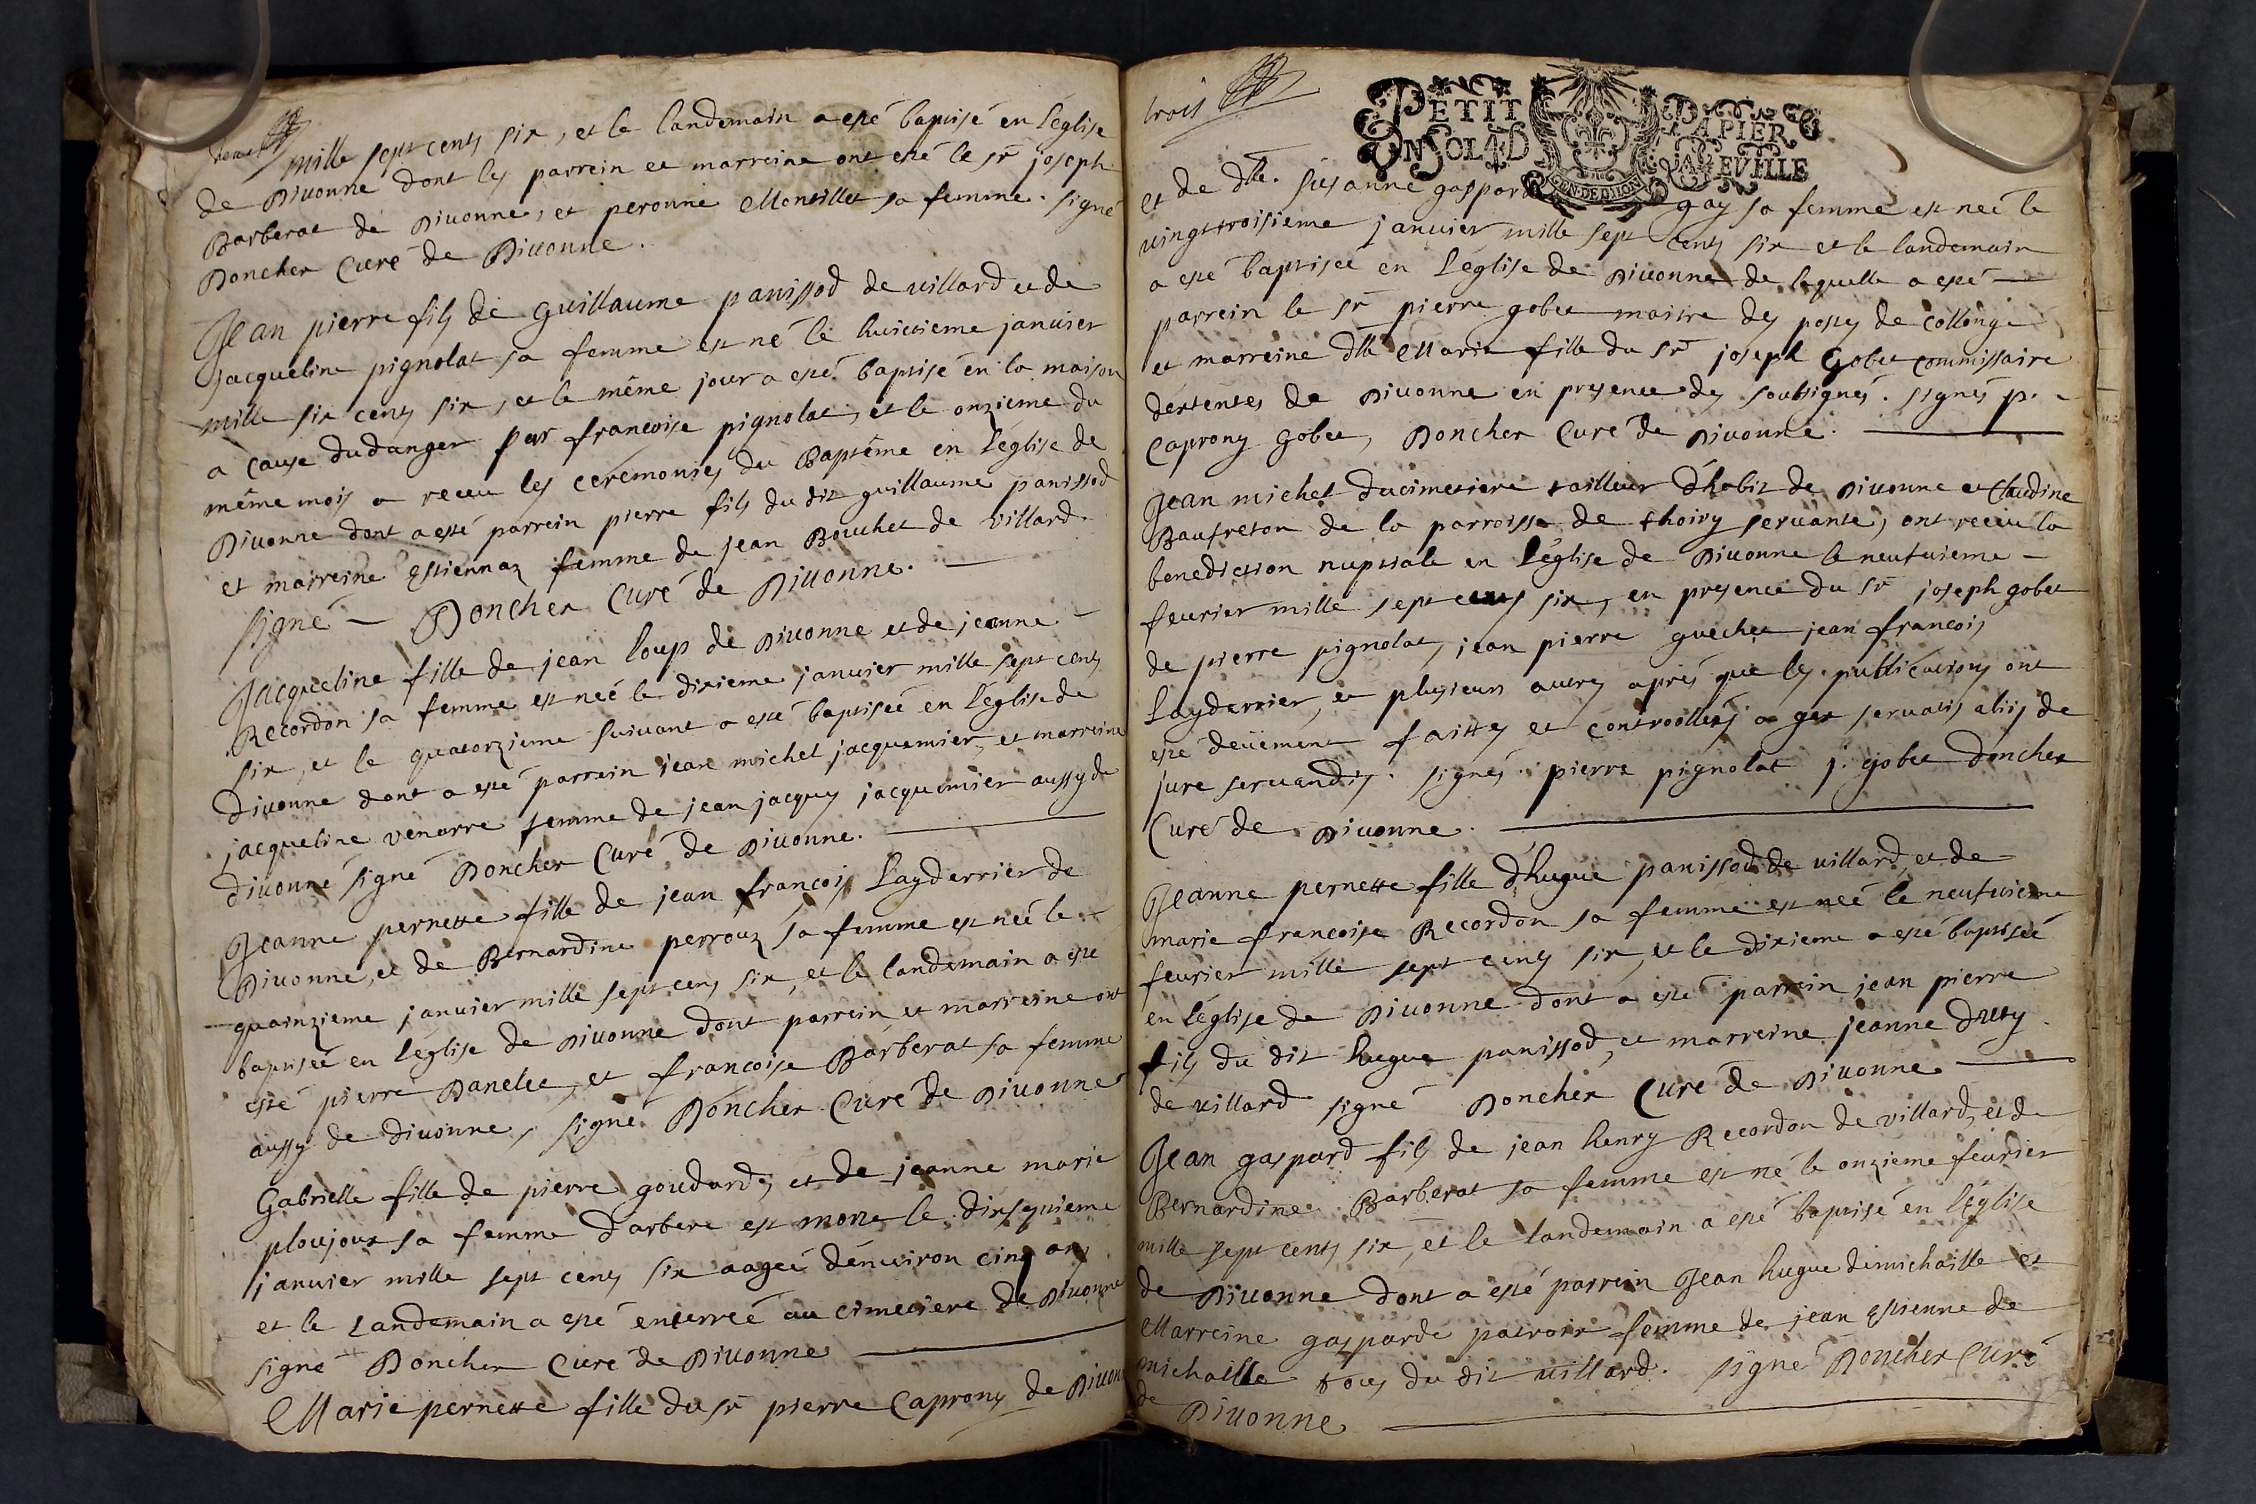 deux
mille sept cents six, et le landemain a esté baptisé en l'église
de Divonne dont les parrein et marreine ont esté le sr joseph
Barberat de Divonne, et peronne Montillet sa femme. signé
Doncher Curé de Divonne.
Jean pierre fils de guillaume panissod de villard et de
jacqueline pignolat sa femme est né le huictieme janvier
mille six cents six, et le même jour a esté baptisé en la maison
a cause du danger par francoise pignolat, et le onzieme du
même mois a receu les ceremonies du Baptême en l'église de
Divonne dont a esté parrein pierre fils du dit guillaume panissod
et marreine Estiennaz femme de jean Bouchet de villard.
signé — Doncher Curé de Divonne. —
Jacqueline fille de jean loup de Divonne et de jeanne —
Recordon sa femme est neé le dixieme janvier mille sept cents
six, et le quatorzieme suivant a esté baptiseé en l'église de
divonne dont a esté parrein jean michel jacquemier, et marreine
jacqueline venarre femme de jean jacques jacquemier aussy de
divonne signé Doncher Curé de Divonne. —
Jeanne pernette fille de jean françois Layderrier de
Divonne, et de Bernardine perrouz sa femme est neé le —
quainzieme janvier mille sept cens six, et le landemain a esté
baptiseé en l'église de Divonne dont parrein et marreine ont
esté pierre Danelet, et francoise Barberat sa femme
aussy de divonne, signé Doncher Curé de Divonne
Gabrielle fille de pierre goudard, et de jeanne marie
ploujoux sa femme d'arbere est morte le dixseptieme
janvier mille sept cens six aageé d'environ cinq ans
et le Landemain a esté enterreé au cimetiere de Divonne
signé Doncher Curé de Divonne —
Marie pernette fille du sr pierre Caprony de Divonne
trois
PETIT PAPIER
UN SOL 4 D LA FEVILLE
GEN. DE DIION
et de dlle. susanne gasparde gay sa femme est neé le
vingttroisieme janvier mille sept cents six et le landemain
a esté baptiseé en l'église de Divonne de laquelle a esté —
parrein le sr pierre gobet maitre des postes de Collonge
et marreine dlle Marie fille du sr joseph Gobet commissaire
d'extentes de Divonne en presence des soubsignés. signés p.
Caprony Gobet, Doncher Curé de Divonne. —
Jean michel ducimetiere tailleur d'habit de Divonne et Claudine
Baufreton de la parroisse de thoiry servante, ont receu la
benediction nuptiale en l'église de Divonne le neufvieme —
fevrier mille sept cens six, en presence du sr joseph gobet
de pierre pignolat, jean pierre guechet jean francois
Layderrier, et plusieurs autres aprés que les publications ont
esté deüement faittes et controollées a gex servatis aliis de
jure servandis. signés. pierre pignolat j. gobet doncher
Curé de Divonne. —
Jeanne pernette fille d'hugue panissod de villard, et de —
marie francoise Recordon sa femme est neé le neufvieme
fevrier mille sept cens six, et le dixieme a esté baptiseé
en l'église de Divonne dont a esté parrein jean pierre
fils du dit hugue panissod, et marreine jeanne
de villard signé Doncher Curé de Divonne —
Jean gaspard fils de jean henry Recordon de villard, et de
Bernardine Barberat sa femme est né le onzieme fevrier
mille sept cents six, et le landemain a esté baptisé en l'église
de Divonne dont a esté parrein Jean hugue dimichaille et
Marreine gasparde femme de jean Estienne de
michaille tous du dit villard. signé Doncher Curé
de Divonne —